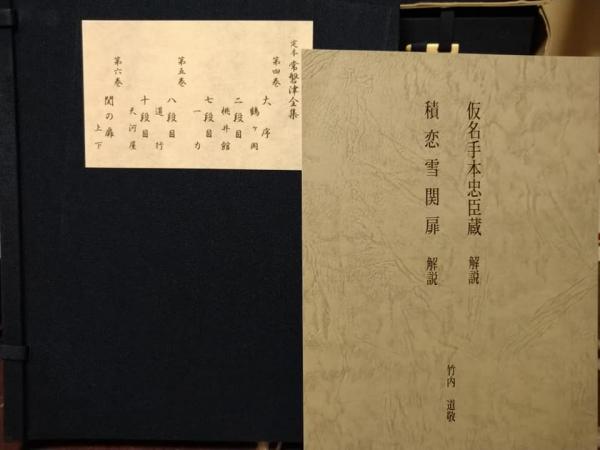 定本 常磐津全集
第四巻
大序
鶴ヶ岡
二段目
桃井館
七段目
一力
第五巻
八段目
道行
十段目
天河屋
第六巻
関の扉 上下
仮名手本忠臣蔵 解説
積恋雪関扉 解説
竹内 道敬